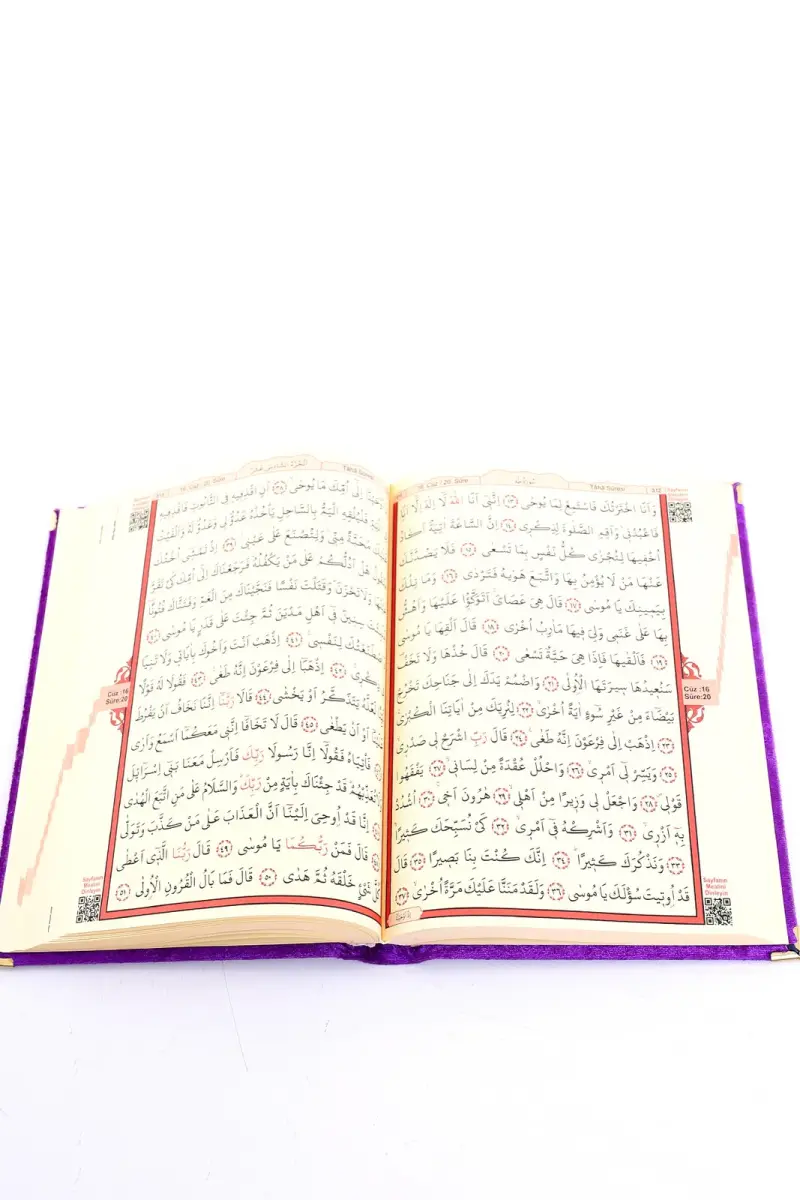 Tâhâ Sûresi
سُورَةُ طٰهٰ
16. Cüz / 20. Sûre
312
وَاَنَا اخْتَرْتُكَ فَاسْتَمِعْ لِمَا يُوحٰى ﴿١٣﴾ اِنَّنٖٓى اَنَا اللّٰهُ لَٓا اِلٰهَ اِلَّٓا اَنَا
فَاعْبُدْنٖى وَاَقِمِ الصَّلٰوةَ لِذِكْرٖى ﴿١٤﴾ اِنَّ السَّاعَةَ اٰتِيَةٌ اَكَادُ
اُخْفٖيهَا لِتُجْزٰى كُلُّ نَفْسٍ بِمَا تَسْعٰى ﴿١٥﴾ فَلَا يَصُدَّنَّكَ
عَنْهَا مَنْ لَا يُؤْمِنُ بِهَا وَاتَّبَعَ هَوٰيهُ فَتَرْدٰى ﴿١٦﴾ وَمَا تِلْكَ
بِيَمٖينِكَ يَا مُوسٰى ﴿١٧﴾ قَالَ هِىَ عَصَاىَ اَتَوَكَّؤُا عَلَيْهَا وَاَهُشُّ
بِهَا عَلٰى غَنَمٖى وَلِىَ فٖيهَا مَاٰرِبُ اُخْرٰى ﴿١٨﴾ قَالَ اَلْقِهَا يَا مُوسٰى
﴿١٩﴾ فَاَلْقٰيهَا فَاِذَا هِىَ حَيَّةٌ تَسْعٰى ﴿٢٠﴾ قَالَ خُذْهَا وَلَا تَخَفْ
سَنُعٖيدُهَا سٖيرَتَهَا الْاُولٰى ﴿٢١﴾ وَاضْمُمْ يَدَكَ اِلٰى جَنَاحِكَ تَخْرُجْ
بَيْضَٓاءَ مِنْ غَيْرِ سُٓوءٍ اٰيَةً اُخْرٰى ﴿٢٢﴾ لِنُرِيَكَ مِنْ اٰيَاتِنَا الْكُبْرٰى
﴿٢٣﴾ اِذْهَبْ اِلٰى فِرْعَوْنَ اِنَّهُ طَغٰى ﴿٢٤﴾ قَالَ رَبِّ اشْرَحْ لٖى صَدْرٖى
﴿٢٥﴾ وَيَسِّرْ لٖٓى اَمْرٖى ﴿٢٦﴾ وَاحْلُلْ عُقْدَةً مِنْ لِسَانٖى ﴿٢٧﴾ يَفْقَهُوا
قَوْلٖى ﴿٢٨﴾ وَاجْعَلْ لٖى وَزٖيرًا مِنْ اَهْلٖى ﴿٢٩﴾ هٰرُونَ اَخٖى ﴿٣٠﴾ اُشْدُدْ
بِهٖٓ اَزْرٖى ﴿٣١﴾ وَاَشْرِكْهُ فٖٓى اَمْرٖى ﴿٣٢﴾ كَىْ نُسَبِّحَكَ كَثٖيرًا
﴿٣٣﴾ وَنَذْكُرَكَ كَثٖيرًا ﴿٣٤﴾ اِنَّكَ كُنْتَ بِنَا بَصٖيرًا ﴿٣٥﴾ قَالَ
قَدْ اُوتٖيتَ سُؤْلَكَ يَا مُوسٰى ﴿٣٦﴾ وَلَقَدْ مَنَنَّا عَلَيْكَ مَرَّةً اُخْرٰى ﴿٣٧﴾
Cüz :16
Sûre:20
Sayfanın
Mealini
Dinleyin
Tâhâ Sûresi
اَلْجُزْءُ السَّادِسَ عَشَرَ
16. Cüz / 20. Sûre
اِلٰٓى اُمِّكَ مَا يُوحٰى ﴿٣٨﴾ اَنِ اقْذِفٖيهِ فِى التَّابُوتِ فَاقْذِفٖيهِ
فَلْيُلْقِهِ الْيَمُّ بِالسَّاحِلِ يَاْخُذْهُ عَدُوٌّ لٖى وَعَدُوٌّ لَهُ وَاَلْقَيْتُ
مَحَبَّةً مِنّٖى وَلِتُصْنَعَ عَلٰى عَيْنٖى ﴿٣٩﴾ اِذْ تَمْشٖٓى اُخْتُكَ
هَلْ اَدُلُّكُمْ عَلٰى مَنْ يَكْفُلُهُ فَرَجَعْنَاكَ اِلٰٓى اُمِّكَ كَىْ تَقَرَّ
وَلَا تَحْزَنَ وَقَتَلْتَ نَفْسًا فَنَجَّيْنَاكَ مِنَ الْغَمِّ وَفَتَنَّاكَ فُتُونًا
سِنٖينَ فٖٓى اَهْلِ مَدْيَنَ ثُمَّ جِئْتَ عَلٰى قَدَرٍ يَا مُوسٰى ﴿٤٠﴾
لِنَفْسٖى ﴿٤١﴾ اِذْهَبْ اَنْتَ وَاَخُوكَ بِاٰيَاتٖى وَلَا تَنِيَا
﴿٤٢﴾ اِذْهَبَٓا اِلٰى فِرْعَوْنَ اِنَّهُ طَغٰى ﴿٤٣﴾ فَقُولَا لَهُ قَوْلًا
لَعَلَّهُ يَتَذَكَّرُ اَوْ يَخْشٰى ﴿٤٤﴾ قَالَا رَبَّنَٓا اِنَّنَا نَخَافُ اَنْ يَفْرُطَ
اَوْ اَنْ يَطْغٰى ﴿٤٥﴾ قَالَ لَا تَخَافَٓا اِنَّنٖى مَعَكُمَٓا اَسْمَعُ وَاَرٰى
فَاْتِيَاهُ فَقُولَٓا اِنَّا رَسُولَا رَبِّكَ فَاَرْسِلْ مَعَنَا بَنٖٓى اِسْرَٓائٖلَ
قَدْ جِئْنَاكَ بِاٰيَةٍ مِنْ رَبِّكَ وَالسَّلَامُ عَلٰى مَنِ اتَّبَعَ الْهُدٰى
اِنَّا قَدْ اُوحِىَ اِلَيْنَٓا اَنَّ الْعَذَابَ عَلٰى مَنْ كَذَّبَ وَتَوَلّٰى
قَالَ فَمَنْ رَبُّكُمَا يَا مُوسٰى ﴿٤٩﴾ قَالَ رَبُّنَا الَّذٖٓى اَعْطٰى
شَىْءٍ خَلْقَهُ ثُمَّ هَدٰى ﴿٥٠﴾ قَالَ فَمَا بَالُ الْقُرُونِ الْاُولٰى ﴿٥١﴾
Cüz :16
Sûre:20
Sayfanın
Mealini
Dinleyin